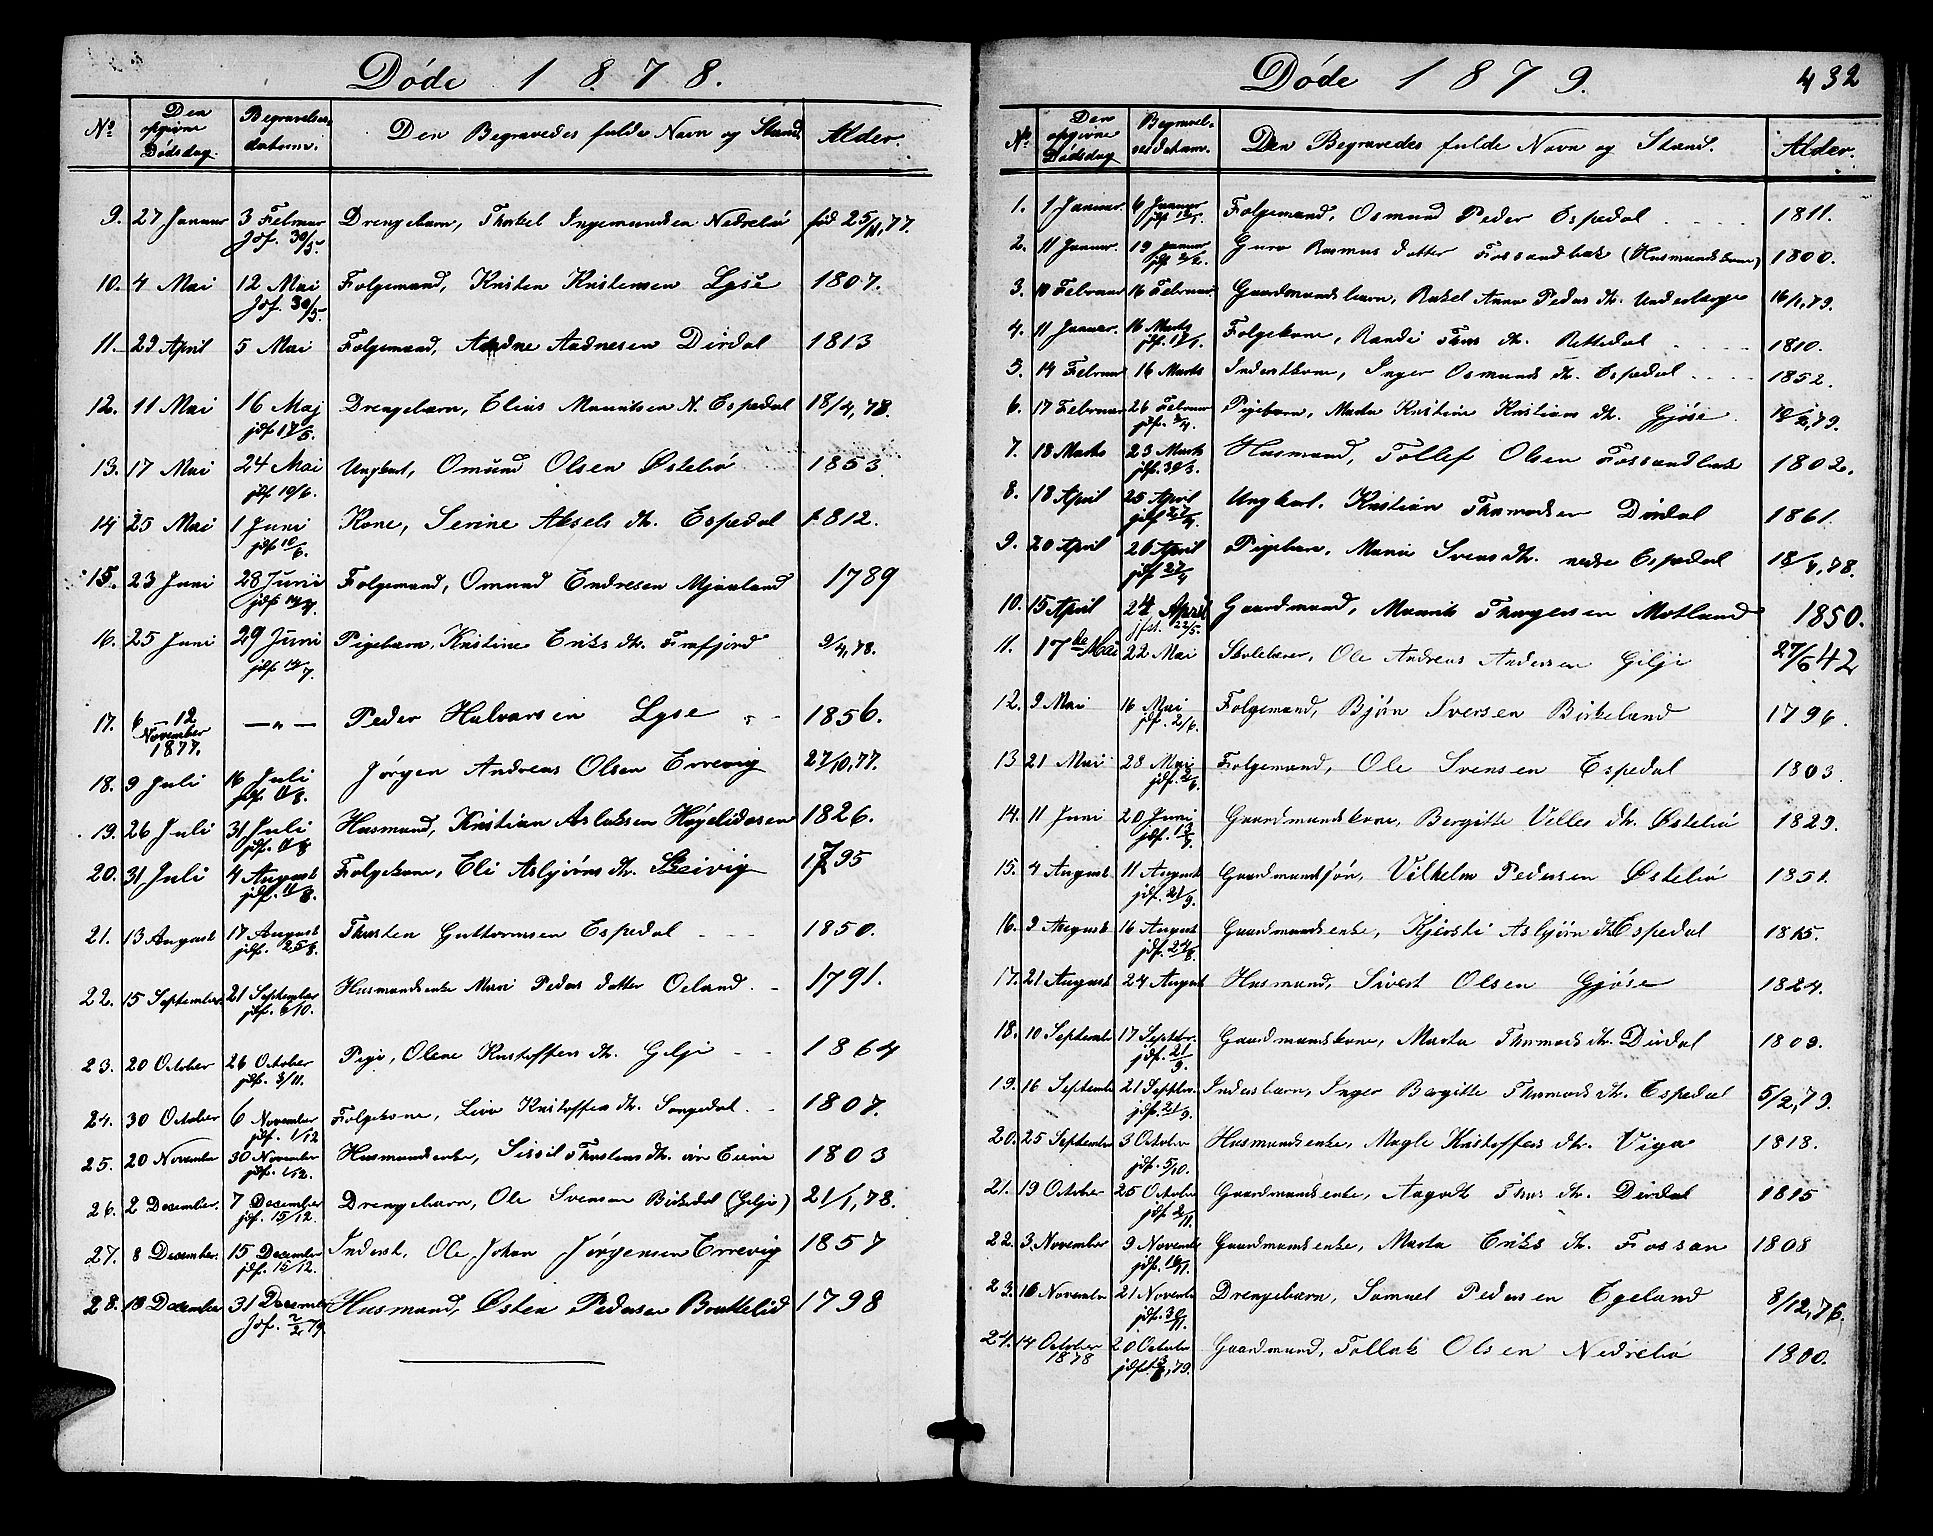 Døde 1878.
No Den opgivne Dødsdag. Begravelses datum. Den Begravedes fulde Navn og Stand. Alder.
9. 27 Januar 3 Februar Jdf. 30/5. Drengebarn, Thorkel Ingemundsen Nedrebø fød 25/11,77.
10. 4 Mai 12 Mai Jdf. 30/5. Folgemand, Kristen Kristensen Lyse 1807.
11. 29 April 5 Mai Folgemand, Aadne Aadnesen Dirdal 1813
12. 11 Mai 16 Maj jdf 17/5. Drengebarn, Elias Mauritsen N. Espedal 18/4,78.
13. 17 Mai 24 Mai jdf 10/6. Ungkarl, Omund Olsen Østebø 1853.
14 25 Mai 1 Juni jdf 10/6. Kone, Serine Aksels dtr. Espedal 1812.
15. 23 Juni 28 Junii jdf 14/7. Folgemand, Omund Endresen Mjaaland 1789
16. 25 Juni 29 Juni jdf 14/7. Pigebarn, Kristine Eriks dtr. Frafjord 2/4,78.
17. 6 – 12 November 1877. — " — Peder Halvorsen Lyse 1856.
18. 9 Juli 16 Juli jdf. 11/8. Jørgen Andreas Olsen Errevig 27/10,77.
19. 26 Juli 31 Juli jdf. 11/8 Husmand, Kristian Aslaksen Høgelidøsen 1826.
20. 31 Juli 4 August jdf. 11/8. Folgekone, Eli Asbjørns dtr. 1795
21. 13 August 17 August jdf. 25/8. Thorsten Guttormsen Espedal 1850.
22. 15 September. 21 September jdf. 6/10. Husmandsenke Mari Peders datter Oeland. 1791.
23. 20 October 26 October jdf. 3/11. Pige, Olene Kristoffers dtr. Gilje 1864
24. 30 October 6 November jdf. 1/12 Folgekone, Liva Kristoffers dtr. Songedal. 1807.
25. 20 November 30 November jdf. 1/12. Husmandsenke, Sissil Thorstens dtr. 1803
26. 2 December. 7 December jdf. 15/12. Drengebarn, Ole Svensen Birkedal (Gilje) 21/1,78.
27. 8 December. 15 December jdf. 15/12. Inderst, Ole Johan Jørgensen Errevig 1857
28. 18 December 31 December Jdf. 2/2 79. Husmand, Østen Pedersen Brattelid 1798
Døde 1879. 432
No Den opgivne Dødsdag Begravelsesdatum. Den Begravedes fulde Navn og Stand. Alder.
1. 1 Januar. 6 Januar Folgemand, Osmund Peder Espedal 1811.
2. 11 Januar. 19 Januar jdf 2/2. Guro Rasmus datter Fossandbak (Husmandskone) 1800.
3. 10 Februar 16 Februar. Gaardmandsbarn, Rakel Anna Peders dtr. Underberge 16/1,79.
4. 11 Januar. 16 Marts Folgekone, Randi Thors dtr. Rettedal 1810.
5. 14 Februar 16 Marts Inderstkone, Inger Osmunds dtr. Espedal 1852.
6. 17 Februar 26 Februar Pigebarn, Marta Kristine Kristians dtr. Gjøse 10/2,79.
7. 18 Marts 23 Marts jdf. 30/3. Husmand, Tollef Olsen Fossandbak 1802.
8. 18 April 25 April jdf 27/4. Ungkarl, Kristian Thormodsen Dirdal 1861.
9. 20 April 26 April jdf 27/4 Pigebarn, Maria Svens dtr. nedre Espedal 18/4,78.
10. 15 April 24 April jfst. 22/5. Gaardmand, Maurits Thorgersen Motland 1850.
11. 17de Mai 22 Mai Skolelærer, Ole Andreas Andersen Gilje 27/6 42
12. 9 Mai 16 Mai jdf. 2/6. Folgemand, Bjørn Iversen Birkeland 1796.
13 21 Mai 28 Mai jdf. 2/6. Folgemand, Ole Svensen Espedal 1803.
14. 11 Juni 20 Juni jdf. 13/7. Gaardmandskone, Bergitte Velles dtr. Østebø 1829.
15. 4 August 11 August jdf. 21/9. Gaardmandssøn, Vilhelm Pedersen Østebø 1851.
16. 9 August 16 August jdf. 24/8. Gaardmandsenke, Kjersti Asbjørn dtr. Espedal 1815.
17. 21 August 24 August Husmand, Sivert Olsen Gjøse 1824.
18. 10 Septembr 17 Septbr. jdf. 21/9. Gaardmandskone, Marta Thormods dtr. Dirdal 1809.
19. 16 Septembr 21 Septbr. jdf. 21/9. Inderstbarn, Inger Bergitte Thormods dtr. Espedal 5/2,79.
20. 25 Septembr 3 Octobr jdf. 5/10. Husmandsenke, Magle Kristoffers dtr. Viga 1818.
21. 19 October 25 Octobr jdf. 2/11. Gaardmandsenke, Aagodt Thors dtr. Dirdal 1815
22. 3. November 9 Novembr jdf. 16/11. Gaardmandsenke, Marta Eriks dtr. Fossan 1808
23. 16 November 21 Novembr jdf. 30/11. Drengebarn, Samuel Pedersen Egeland 8/12,76.
24. 14 October 1878 20 Octobr Gaardmand, Tollak Olsen Nedrebø 1800.